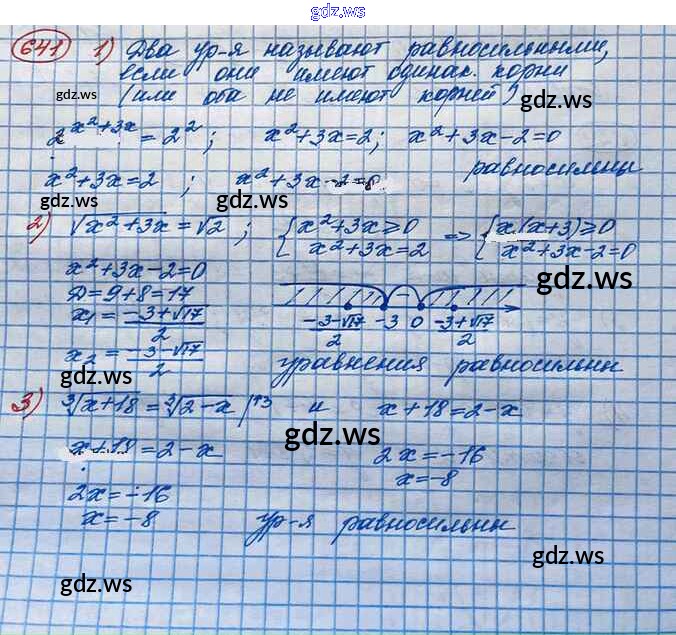 gdz.ws
641 1) Два ур-я называют равносильными,
если они имеют одинак. корни
(или оба не имеют корней)
gdz.ws
gdz.ws
2^{x²+3x} = 2²; x²+3x=2; x²+3x-2=0
равносильны
x²+3x=2 ; x²+3x-2=0
gdz.ws
gdz.ws
2) √x²+3x = √2 ; { x²+3x≥0 => { x(x+3)≥0
x²+3x=2 x²+3x-2=0
gdz.ws
x²+3x-2=0
Д=9+8=17
gdz.ws
x₁ = (-3+√17)/2
(-3-√17)/2 -3 0 (-3+√17)/2
x₂ = (-3-√17)/2
уравнения равносильны
gdz.ws
3) ³√x+18 = ³√2-x |↑3 и x+18=2-x
gdz.ws
x+18=2-x 2x=-16
gdz.ws
x=-8
2x=-16
x=-8 ур-я равносильны
gdz.ws
gdz.ws